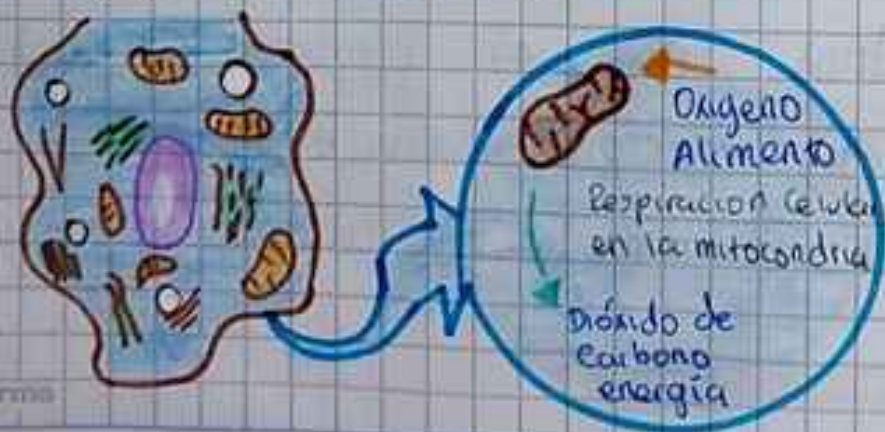 Oxígeno
Alimento
Respiración Celular
en la mitocondria
Dióxido de
carbono
energía